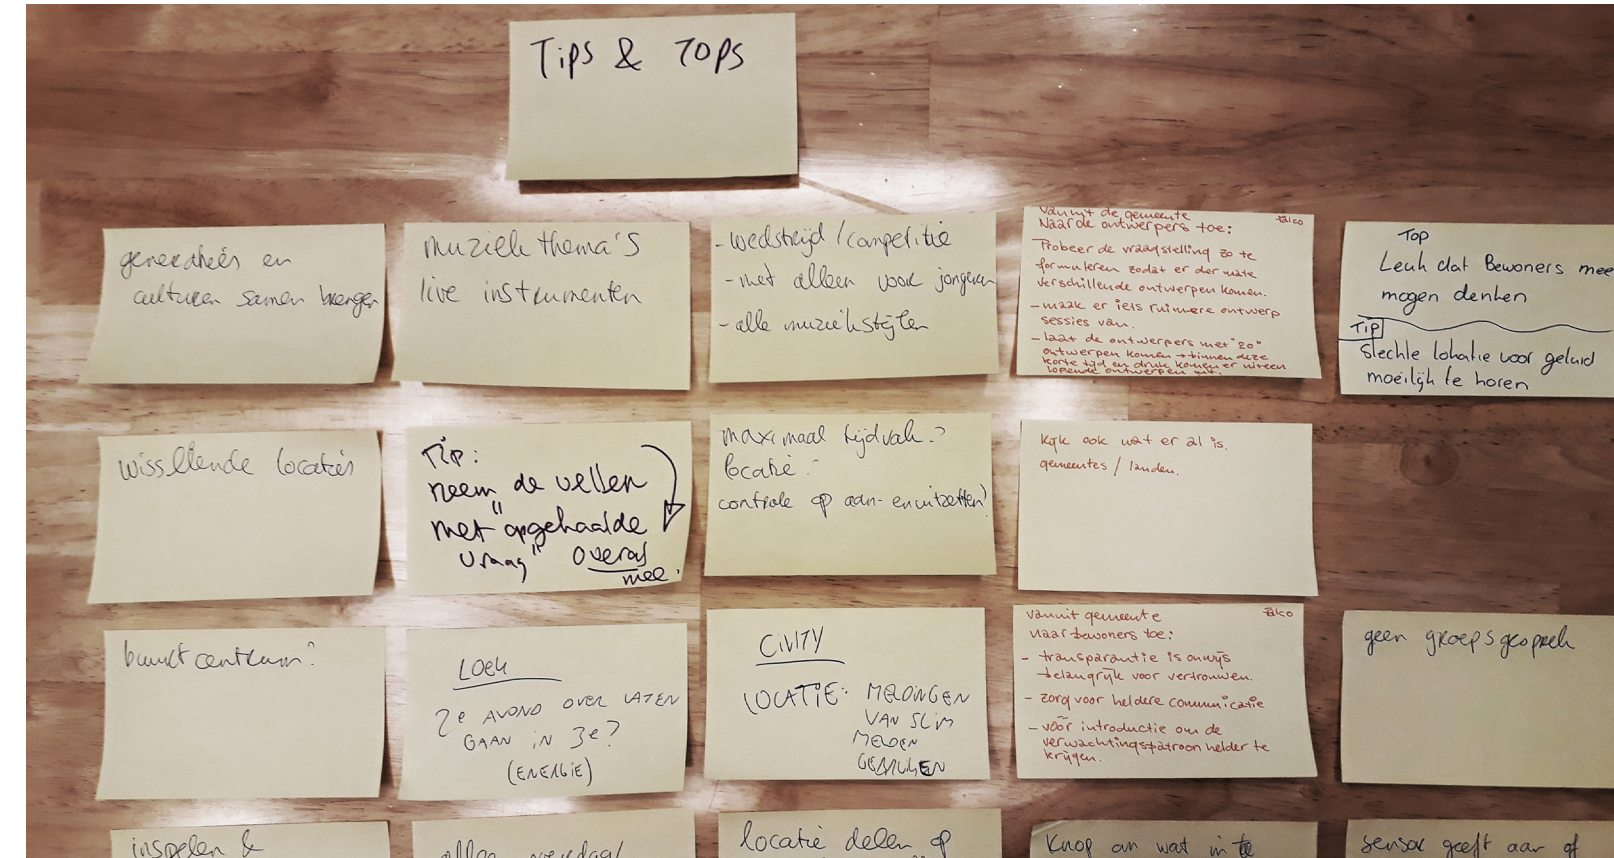 Tips & Tops
generatiës en
culturen samen brengen
muziek thema's
live instrumenten
- wedstrijd / competitie
- niet alleen voor jongeren
- alle muziekstijlen
vanuit de gemeente
falco
Naar de ontwerpers toe:
Probeer de vraagstelling zo te
formuleren zodat er der mate
verschillende ontwerpen komen.
- maak er iets ruimere ontwerp
sessies van.
- laat de ontwerpers met "20"
ontwerpen komen → binnen deze
korte tijd en druk komen er uiteen
lopende ontwerpen uit.
Top
Leuk dat Bewoners mee
mogen denken
Tip
Slechte lokatie voor geluid
moeilijk te horen
wisselende locaties
Tip:
neem de vellen
met "opgehaalde
vraag" overal
mee.
maximaal tijdvak?
locatie?
controle op aan- en uitzetten?
Kijk ook wat er al is.
gemeentes / landen.
buurtcentrum?
LOEK
2e AVOND OVER LATEN
GAAN IN 3e?
(ENERGIE)
CIVITY
LOCATIE: MELDINGEN
VAN SLIM
MELDEN
GEBRUIKEN
vanuit gemeente
falco
naar bewoners toe:
- transparantie is onwijs
belangrijk voor vertrouwen.
- zorg voor heldere communicatie
- vóór introductie om de
verwachtingspatroon helder te
krijgen.
geen groepsgesprek
inspelen &
locatie delen op
Knop an wat in te
sensor geeft aan of